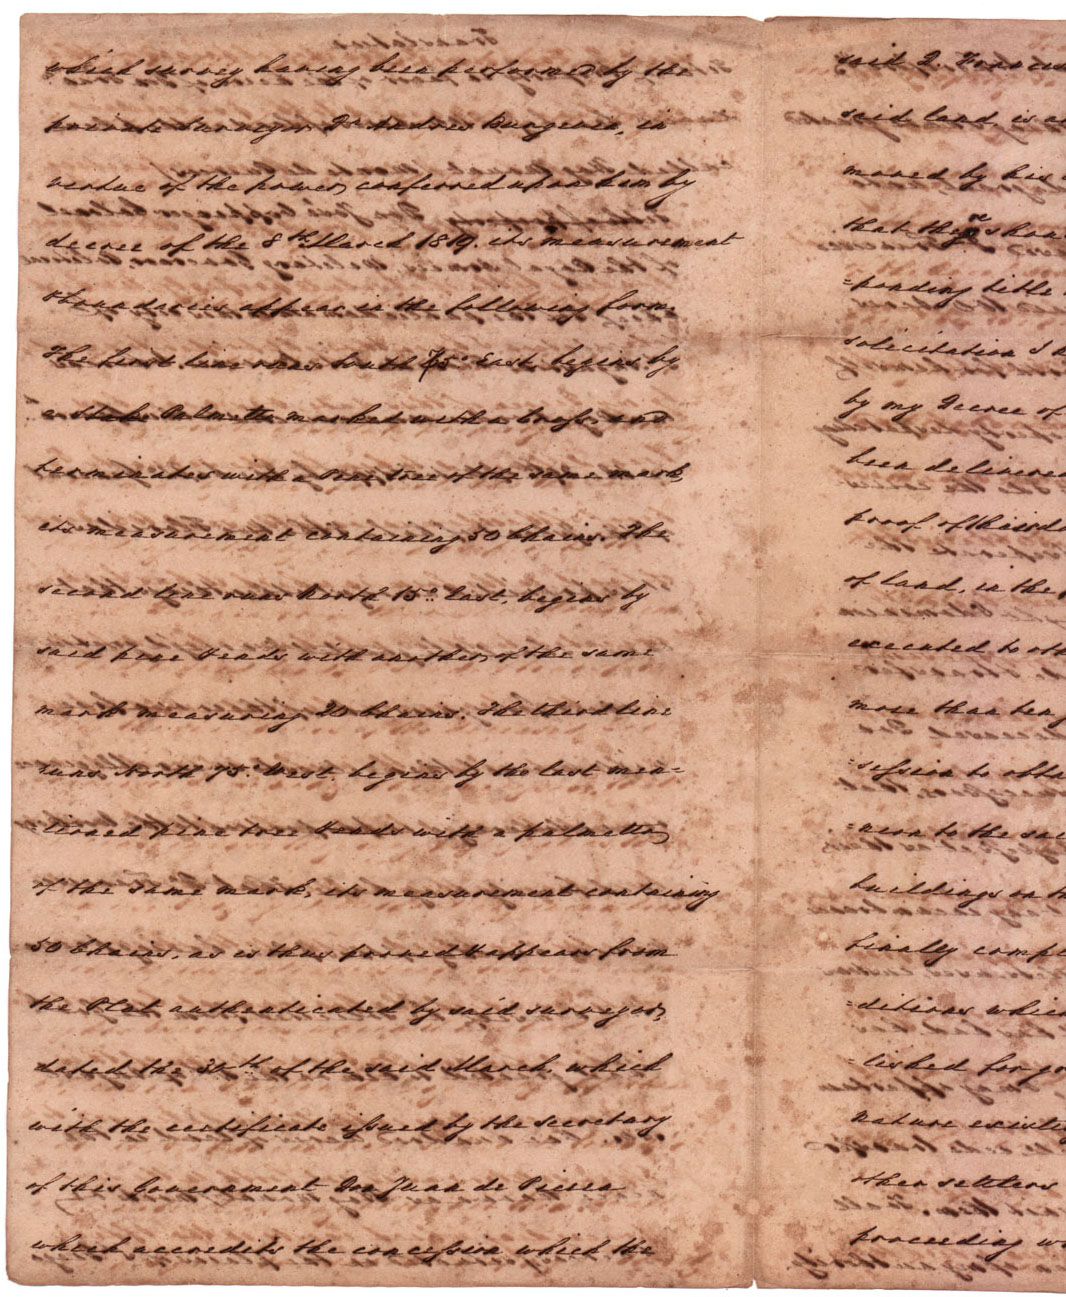 which survey having been performed by the
private Surveyor Dn Andres Burgevin, in
vertue of the power, conferred upon him by
decree of the 8th March 1819. its measurement
& boundaries appear in the following form
The first line runs South 75° East, begins by
a Stake Palmetto marked with a Cross, and
terminates with a Pine tree of the same mark,
its measurement containing 50 Chains. The
second line runs North 15° East, begins by
said pine & ends with another, of the same
mark measuring 20 Chains. The third line
runs North 75° West, begins by the last men=
=tioned pine tree & ends with a palmetto,
of the same mark, its measurement containing
50 Chains, as is thus proved & appears from
the Plat authenticated by said surveyor,
dated the 30th of the said March, which
with the certificate issued by the secretary
of this Government Don Juan de
which accredits the concession which the
said D.
said land, is
moved by his
that the
=ponding title
solicitation I
by my Decree of
been delivered
proof of
of land, in the
executed to
more than
=session to
to the
buildings on
finally
=ditions
=lished for
nature
other settlers
proceeding